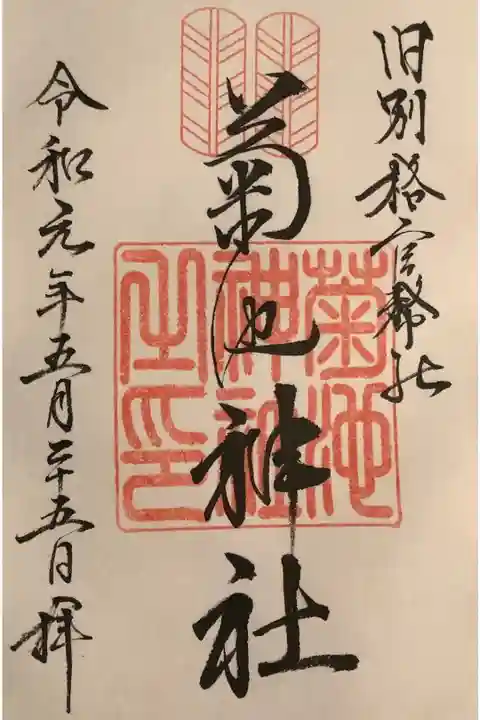 旧別格官幣社
菊池神社
菊池
神社
之印
令和元年五月二十五日拝